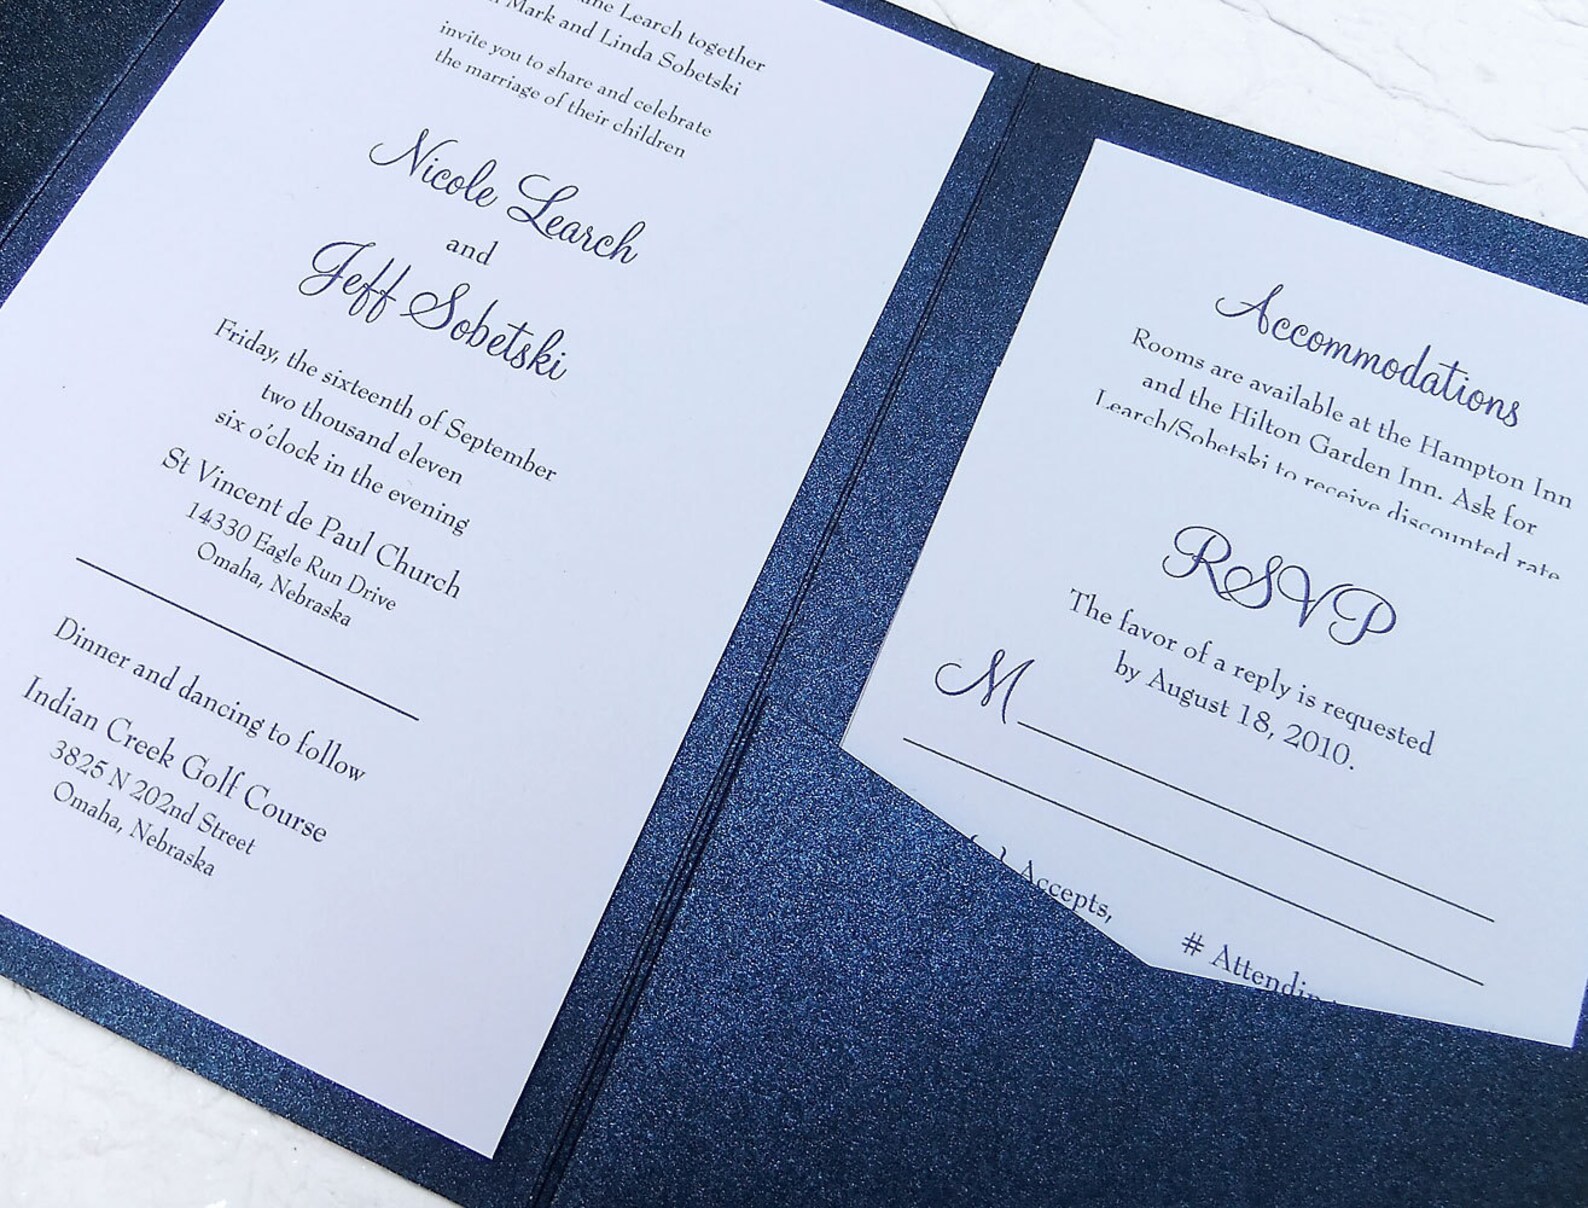 Learch together
Mark and Linda Sobetski
invite you to share and celebrate
the marriage of their children
Nicole Learch
and
Jeff Sobetski
Friday, the sixteenth of September
two thousand eleven
six o'clock in the evening
St Vincent de Paul Church
14330 Eagle Run Drive
Omaha, Nebraska
Dinner and dancing to follow
Indian Creek Golf Course
3825 N 202nd Street
Omaha, Nebraska
Accommodations
Rooms are available at the Hampton Inn
and the Hilton Garden Inn. Ask for
Learch/Sobetski to receive discounted rate
RSVP
The favor of a reply is requested
by August 18, 2010.
M
Accepts,
# Attending